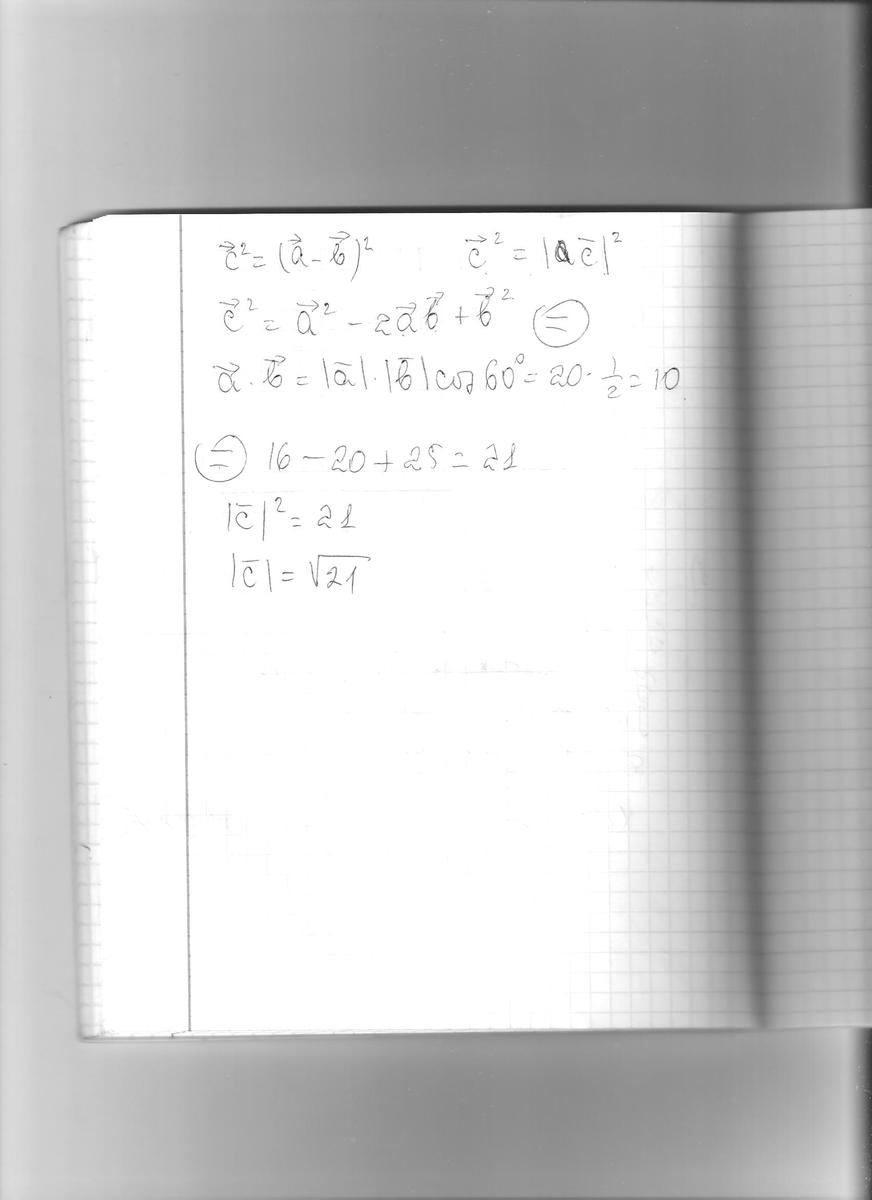 c⃗² = (a⃗ − b⃗)² c⃗² = |c̄|²
c⃗² = a⃗² − 2a⃗b⃗ + b⃗² (=)
a⃗ · b⃗ = |ā|·|b̄| cos 60° = 20 · 1/2 = 10
(=) 16 − 20 + 25 = 21
|c̄|² = 21
|c̄| = √21